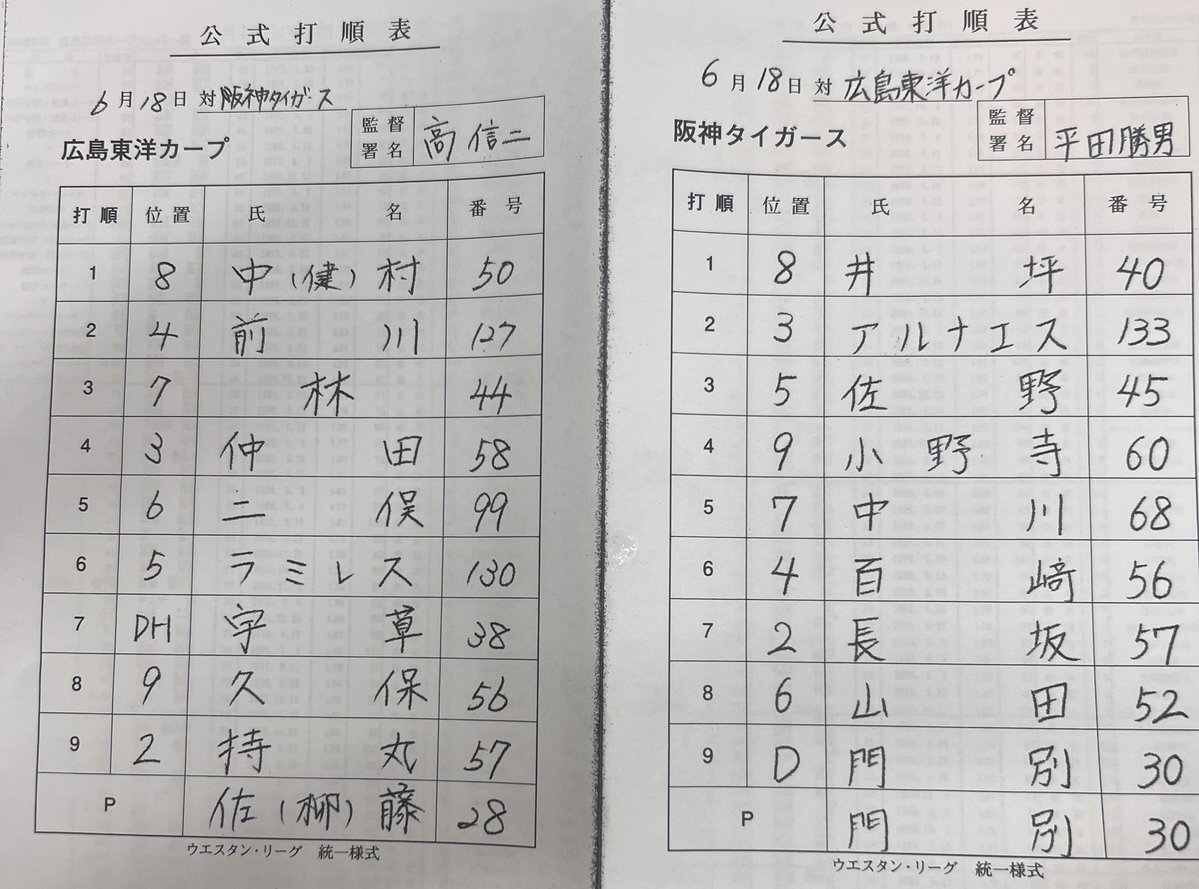 公式打順表
6月18日 対 阪神タイガース
広島東洋カープ 監督署名 高信二
打順 位置 氏名 番号
1 8 中(健)村 50
2 4 前川 127
3 7 林 44
4 3 仲田 58
5 6 二俣 99
6 5 ラミレス 130
7 DH 宇草 38
8 9 久保 56
9 2 持丸 57
P 佐(柳)藤 28
ウエスタン・リーグ 統一様式
公式打順表
6月18日 対 広島東洋カープ
阪神タイガース 監督署名 平田勝男
打順 位置 氏名 番号
1 8 井坪 40
2 3 アルナエス 133
3 5 佐野 45
4 9 小野寺 60
5 7 中川 68
6 4 百﨑 56
7 2 長坂 57
8 6 山田 52
9 D 門別 30
P 門別 30
ウエスタン・リーグ 統一様式